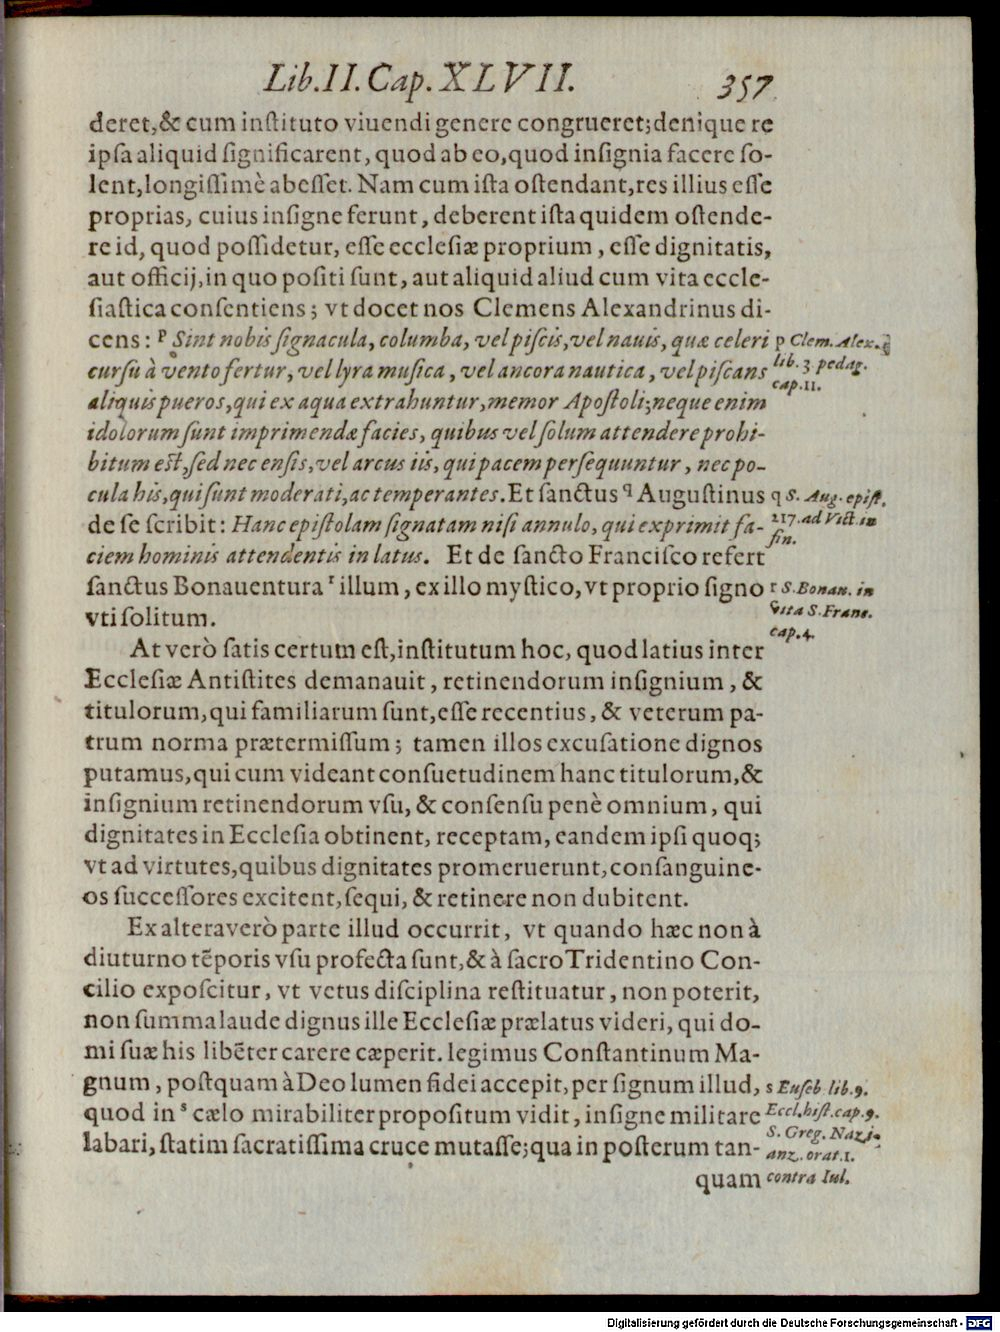 Lib. II. Cap. XLVII. 357
deret, & cum inſtituto viuendi genere congrueret; denique re
ipſa aliquid ſignificarent, quod ab eo, quod inſignia facere ſo-
lent, longiſſimè abeſſet. Nam cum iſta oſtendant, res illius eſſe
proprias, cuius inſigne ferunt, deberent iſta quidem oſtende-
re id, quod poſſidetur, eſſe eccleſiæ proprium, eſſe dignitatis,
aut officij, in quo poſiti ſunt, aut aliquid aliud cum vita eccle-
ſiaſtica conſentiens; vt docet nos Clemens Alexandrinus di-
cens: p Sint nobis ſignacula, columba, vel piſcis, vel nauis, quæ celeri
curſu à vento fertur, vel lyra muſica, vel ancora nautica, vel piſcans
aliquis pueros, qui ex aqua extrahuntur, memor Apoſtoli; neque enim
idolorum ſunt imprimendæ facies, quibus vel ſolum attendere prohi-
bitum eſt, ſed nec enſis, vel arcus iis, qui pacem perſequuntur, nec po-
cula his, qui ſunt moderati, ac temperantes. Et ſanctus q Auguſtinus
de ſe ſcribit: Hanc epiſtolam ſignatam niſi annulo, qui exprimit fa-
ciem hominis attendentis in latus. Et de ſancto Franciſco refert
ſanctus Bonauentura r illum, ex illo myſtico, vt proprio ſigno
vti ſolitum.
At verò ſatis certum eſt, inſtitutum hoc, quod latius inter
Eccleſiæ Antiſtites demanauit, retinendorum inſignium, &
titulorum, qui familiarum ſunt, eſſe recentius, & veterum pa-
trum norma prætermiſſum; tamen illos excuſatione dignos
putamus, qui cum videant conſuetudinem hanc titulorum, &
inſignium retinendorum vſu, & conſenſu penè omnium, qui
dignitates in Eccleſia obtinent, receptam, eandem ipſi quoq;
vt ad virtutes, quibus dignitates promeruerunt, conſanguine-
os ſucceſſores excitent, ſequi, & retinere non dubitent.
Ex altera verò parte illud occurrit, vt quando hæc non à
diuturno tẽporis vſu profecta ſunt, & à ſacro Tridentino Con-
cilio expoſcitur, vt vetus diſciplina reſtituatur, non poterit,
non ſumma laude dignus ille Eccleſiæ prælatus videri, qui do-
mi ſuæ his libẽter carere cæperit. legimus Conſtantinum Ma-
gnum, poſtquam à Deo lumen fidei accepit, per ſignum illud,
quod in s cælo mirabiliter propoſitum vidit, inſigne militare
labari, ſtatim ſacratiſſima cruce mutaſſe; qua in poſterum tan-
quam
p Clem. Alex.
lib. 3 pedag.
cap. 11.
q S. Aug. epiſt.
217. ad Vict. in
fin.
r S. Bonau. in
vita S. Franc.
cap. 4.
s Euſeb lib. 9.
Eccl. hiſt. cap. 9.
S. Greg. Nazi-
anz. orat. 1.
contra Iul.
Digitalisierung gefördert durch die Deutsche Forschungsgemeinschaft - DFG